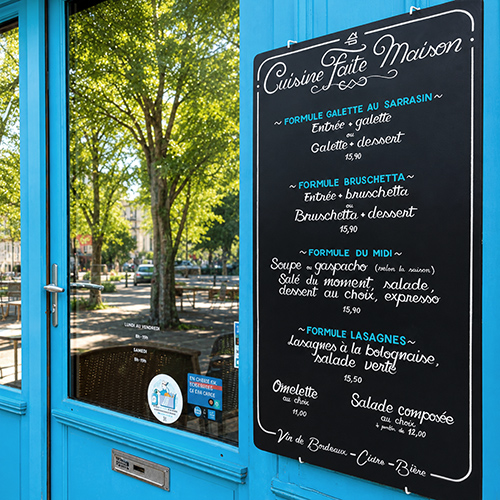 Cuisine Faite Maison
~ FORMULE GALETTE AU SARRASIN ~
Entrée + galette
ou
Galette + dessert
15,90
~ FORMULE BRUSCHETTA ~
Entrée + bruschetta
ou
Bruschetta + dessert
15,90
~ FORMULE DU MIDI ~
Soupe ou gaspacho (selon la saison)
Salé du moment, salade,
dessert au choix, expresso
15,90
~ FORMULE LASAGNES ~
Lasagnes à la bolognaise,
salade verte
15,50
Omelette
au choix
11,00
Salade composée
au choix
à partir de 12,00
Vin de Bordeaux - Cidre - Bière
LUNDI AU VENDREDI
8h - 19h
SAMEDI
8h - 19h